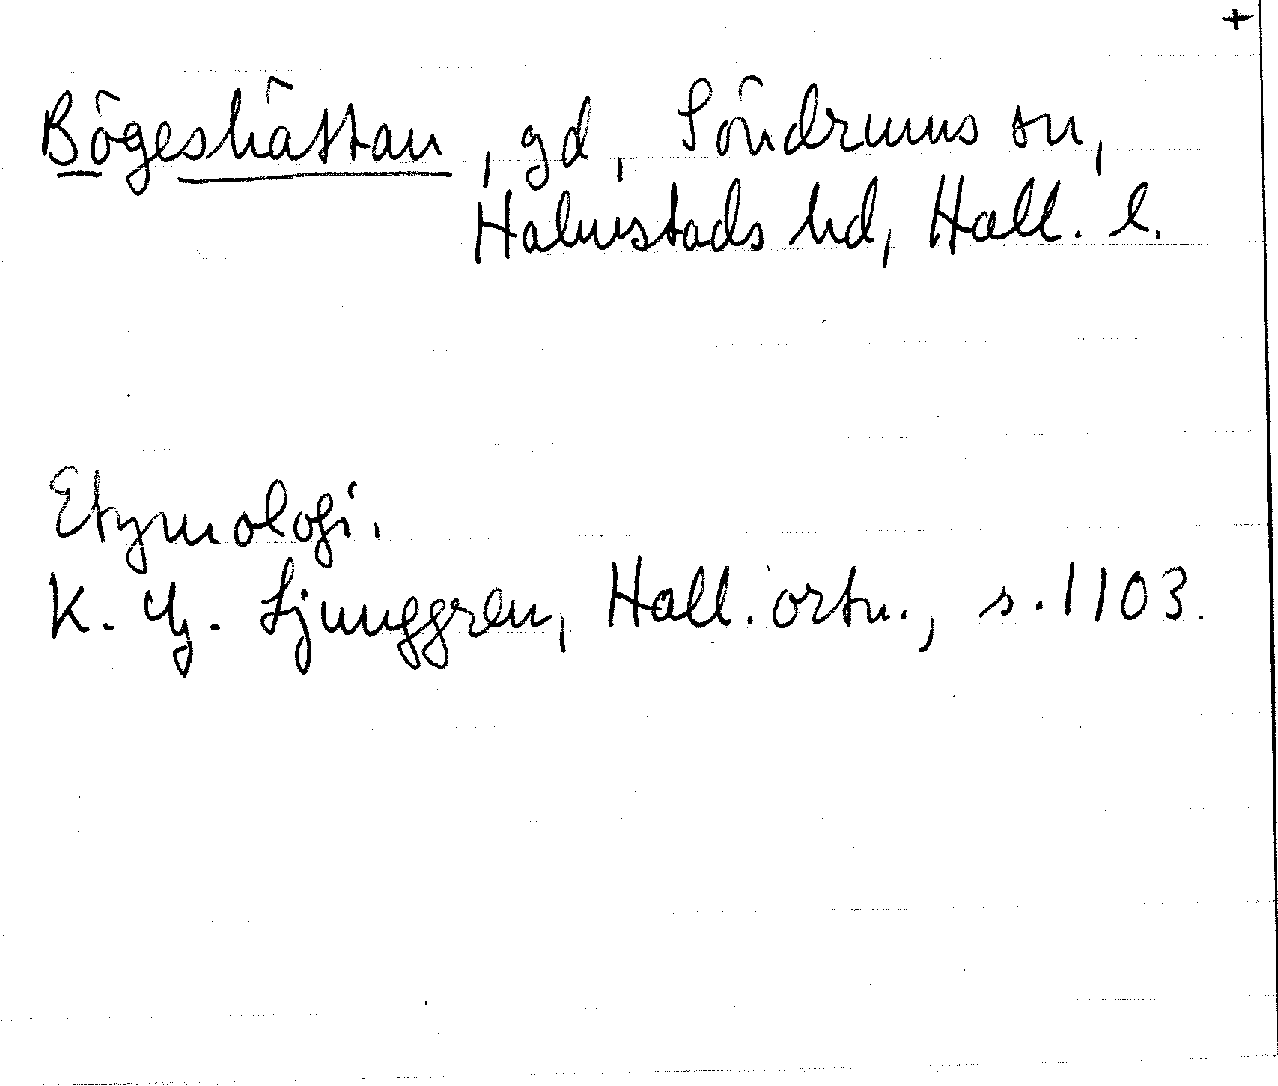 +
Bögeshättan, gd, Söndrums sn,
Halmstads hd, Hall. l.
Etymologi.
K. G. Ljunggren, Hall. ortn., s. 1103.